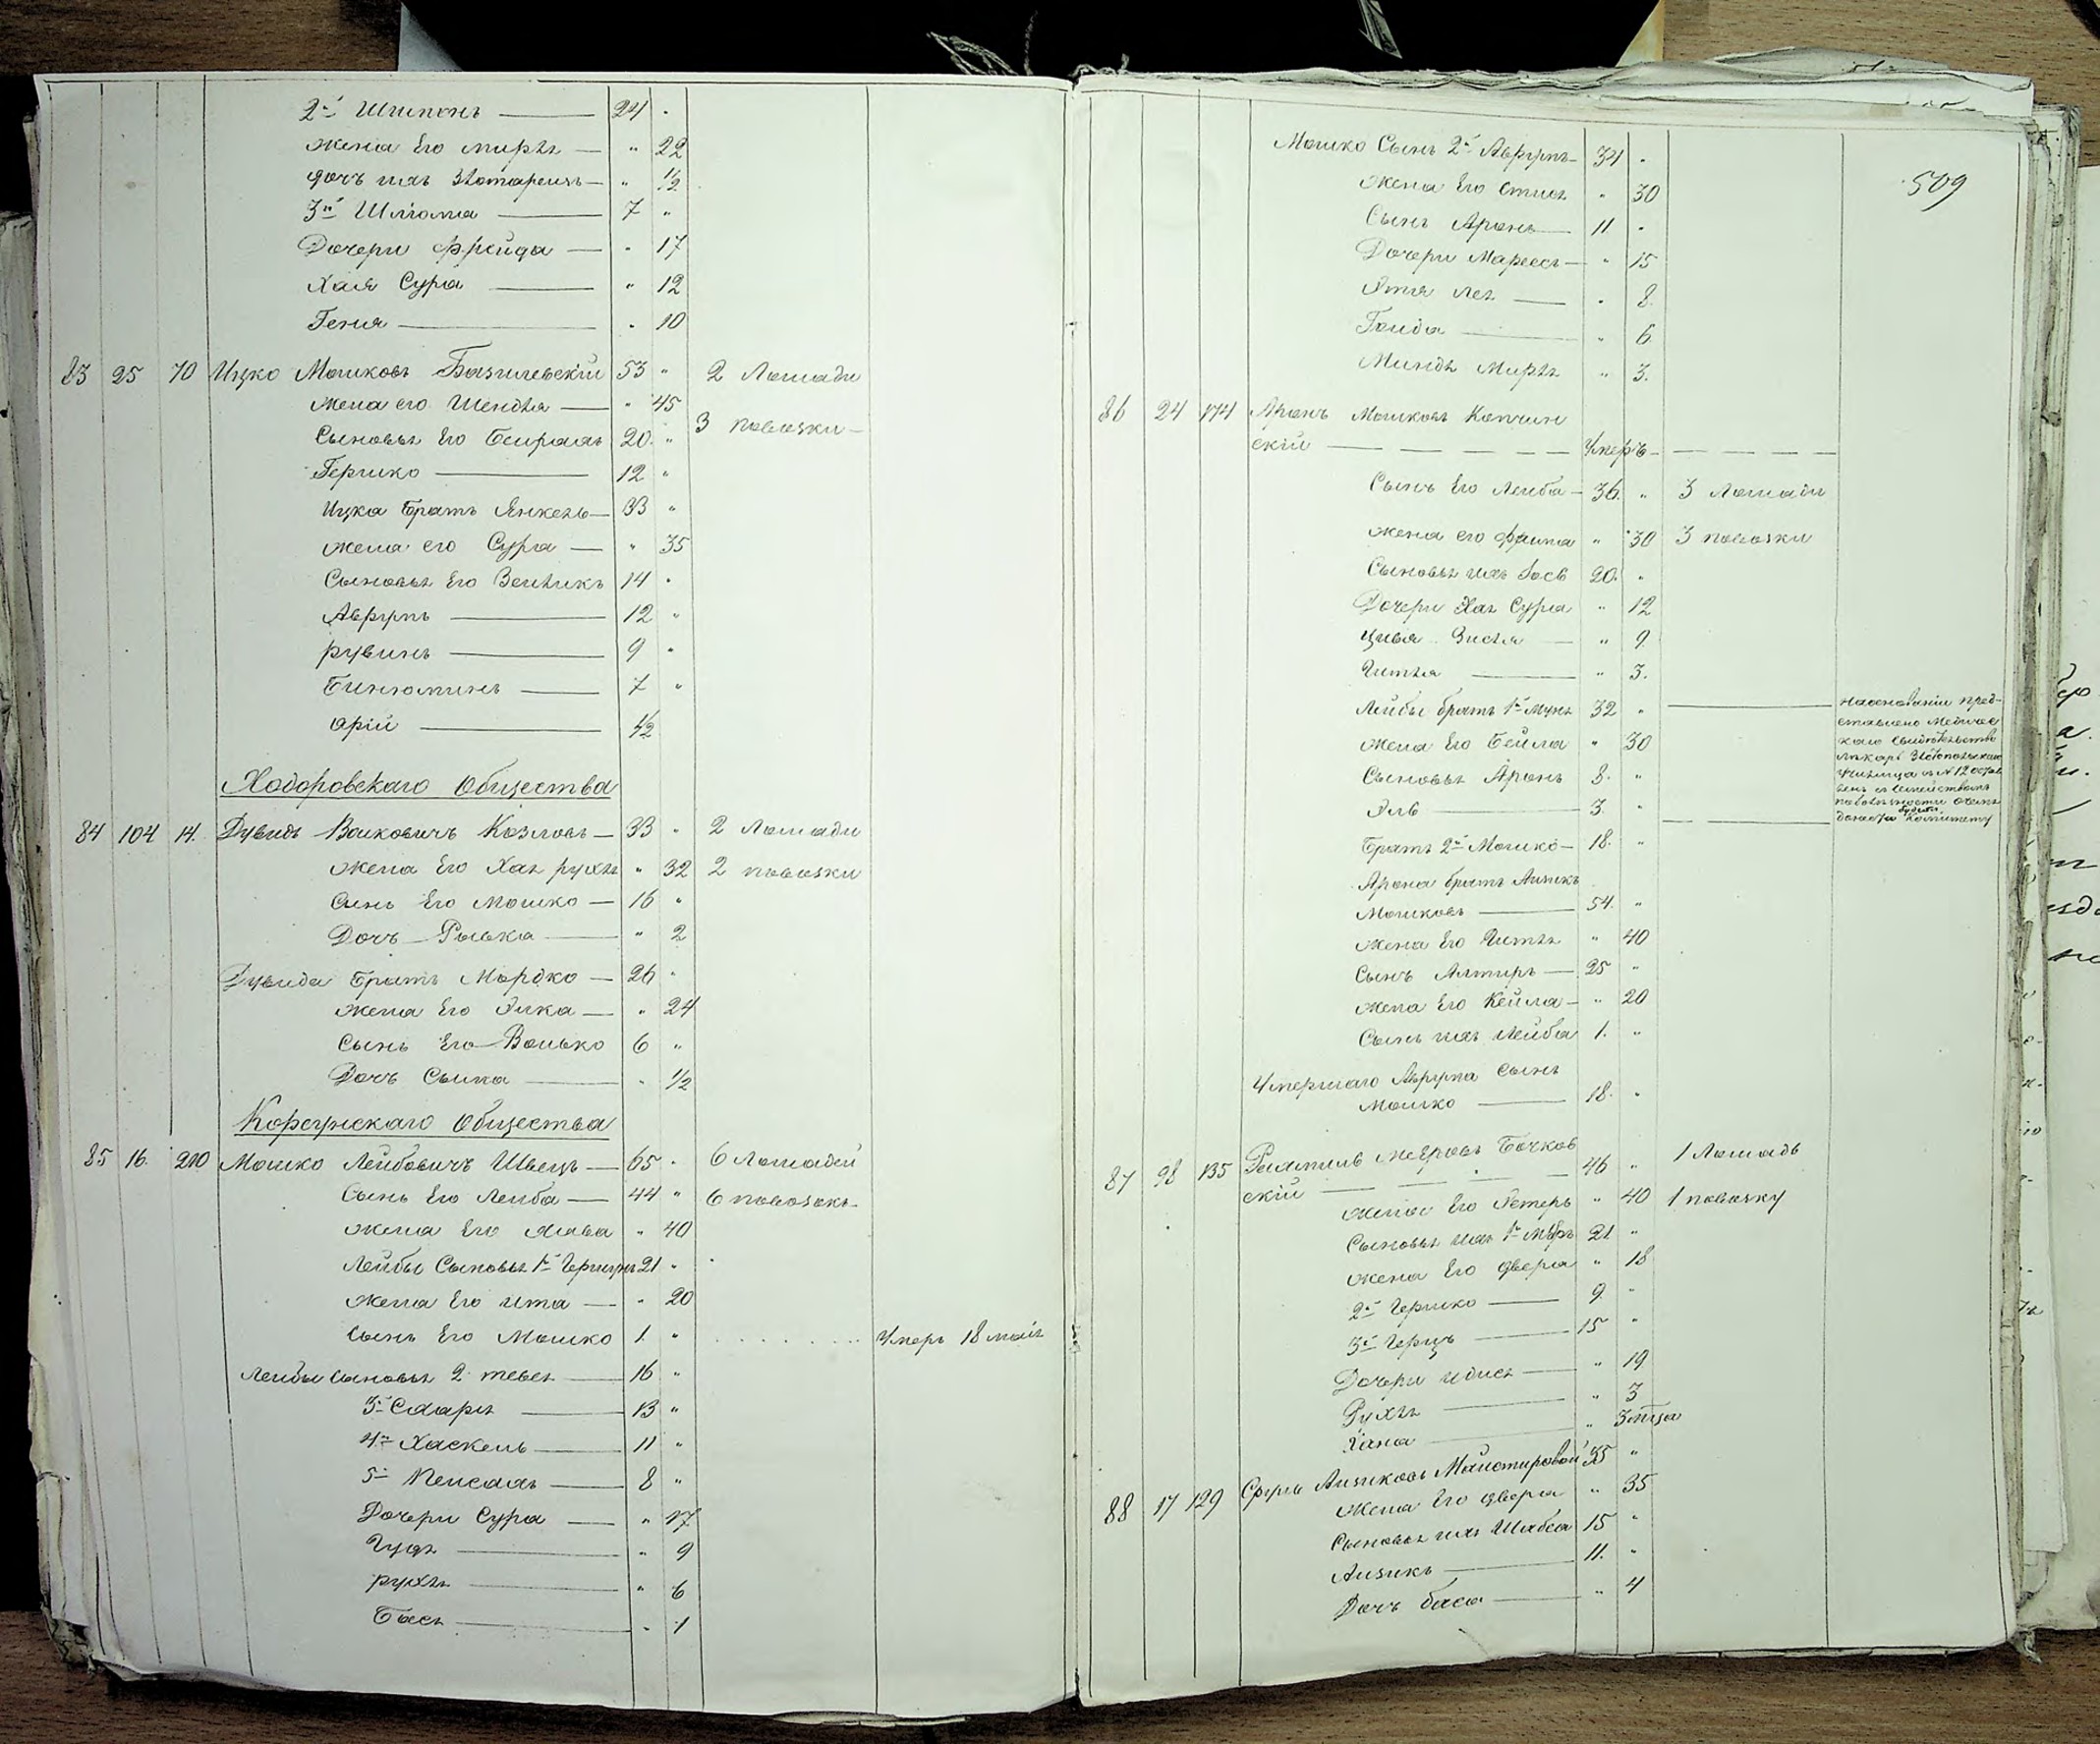 2й Шипонь — 24 "
жена Его мирля — " 22
дочь ихъ — " 1/2
3й Шлiома — 7 "
Дочери Фрейда — " 17
Хая Сура — " 12
Геня — " 10
83 25 70 Ицко Мошковъ Базилевскiй 53 " 2 Лошади
жена его Шендля — " 45
Сыновья Его 20 " 3 повозки —
Гершко — 12 "
Ицка Братъ Янкель — 33 "
жена его Сура — " 35
Сыновья Его Зейликъ 14 "
Аврумъ — 12 "
рувинъ — 9 "
Бинюминъ — 7 "
Орiй — 1/2
Ходоровскаго Общества
84 104 14. Дувидъ Волковичъ Козловъ — 33 " 2 Лошади
жена Его Хая рухля " 32 2 повозки
Сынъ Его Мошко — 16 "
Дочь — Роська — " 2
Дувида Братъ Мордко — 26 "
жена Его Элка — " 24
Сынъ Его — Волько 6 "
Дочь Сима — " 1/2
Корсунскаго Общества
85 16. 210 Мошко Лейбовичъ Швецъ — 65 " 6 Лошадей
Сынъ Его Лейба — 44 " 6 повозокъ
жена Его Хава " 40
Лейбы Сыновья 1й Гершунъ 21 "
жена Его ита — " 20
Сынъ Его Мошко 1. " . . . . . . . Умеръ 18 маiя
Лейбы сыновья 2. тевел — 16 "
3й Схарiя — 13 "
4й Хаскель — 11 "
5й Пейсахъ — 8 "
Дочери Сура — " 17
Гудя — " 9
рухля — " 6
Бася — " 1
509
Мошко Сынъ 2й Аврумъ — 34 "
жена Его " 30
Сынъ Аронъ — 11 "
Дочери Мареся — " 15
Этя лея — " 8.
Голда — " 6
Миндя Мирля " 3.
86 24 174 Аронъ Мошковъ Копчин
скiй — — — — — Умеръ — — — —
Сынъ Его Лейба — 36. " 3 Лошади
жена его фрима " 30 3 повозки
Сыновья ихъ Iосъ 20. "
Дочери Хая Сура " 12
Цивя Зисля — " 9.
Гитля — " 3.
Лейбы братъ 1й 32 " —
жена Его Бейла " 30
Сыновья Аронъ 8. "
Эль — 3. "
на основанiи пред-
ставлено Медичес
каго свидѣтельства
лѣкаря
Училища за № 12
семействомъ
Комитету
Братъ 2й Мошко — 18. "
Арона братъ Аизикъ
Мошковъ — 54. "
жена Его Гитля " 40
Сынъ Алтиръ — 25 "
жена Его Кейла — " 20
Сынъ ихъ Лейба 1. "
Умершаго Аврума Сынъ
Мошко — 18. "
87 98 135 Рахмиль Меѣровъ Бочков
скiй — — — — 46 " 1 Лошадь
жена Его Естеръ " 40 1 повозку
Сыновья ихъ 1й Мѣръ 21 "
жена Его двера " 18
2й Гершко — 9. "
3й Герцъ — 15 "
Дочери идися — " 19
Рухля — " 3
Хана — " 3 мѣся
88 17 129 Сруль Аизиковъ Майстировой 35 "
жена Его двера " 35
Сыновья ихъ Шабса 15 "
Аизикъ — 11. "
Дочь баса — " 4